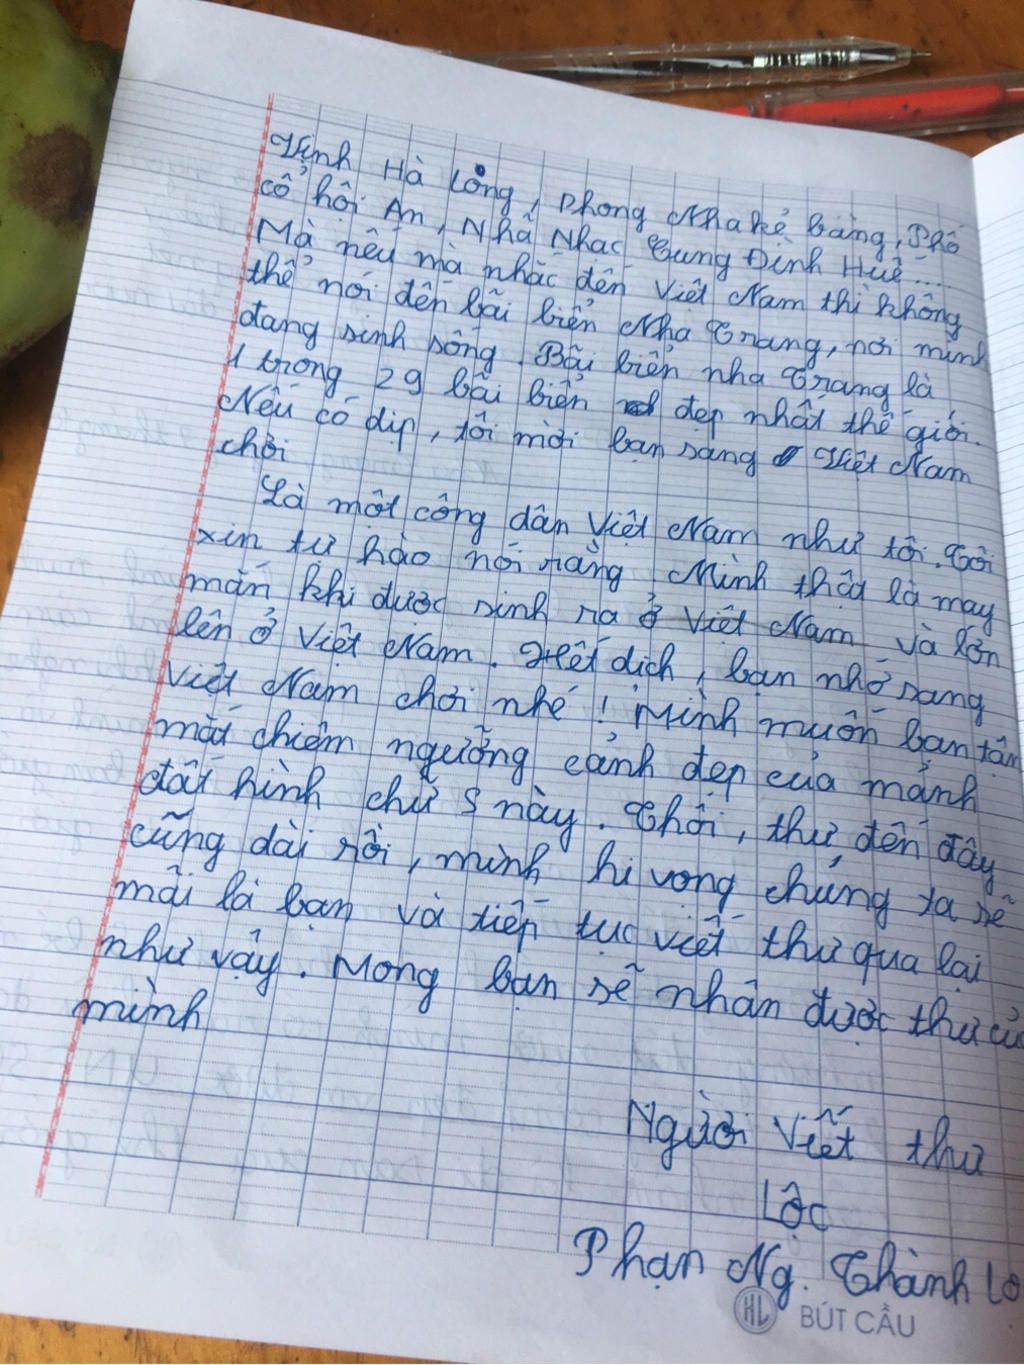 Vịnh Hà Lông, Phong Nha kẻ bàng, Phố
cổ hội An, Nhã Nhạc Cung Đình Huế....
Mà nếu mà nhắc đến Việt Nam thì không
thể nói đến bãi biển Nha Trang, nơi mình
đang sinh sống. Bãi biển nha Trang là
1 trong 29 bãi biển đẹp nhất thế giới.
Nếu có dịp, tôi mời bạn sang Việt Nam
chơi
Là một công dân Việt Nam như tôi. Tôi
xin tự hào nói rằng Mình thật là may
mắn khi được sinh ra ở Việt Nam và lớn
lên ở Việt Nam. Hết dịch, bạn nhớ sang
Việt Nam chơi nhé! Mình muốn bạn tận
mắt chiêm ngưỡng cảnh đẹp của mảnh
đất hình chữ S này. Thôi, thư đến đây
cũng dài rồi, mình hi vọng chúng ta sẽ
mãi là bạn và tiếp tục viết thư qua lại
như vậy. Mong bạn sẽ nhận được thư củ
mình
Người Viết thư
Lộc
Phạn Ng. Thành Lộ
HL BÚT CẦU